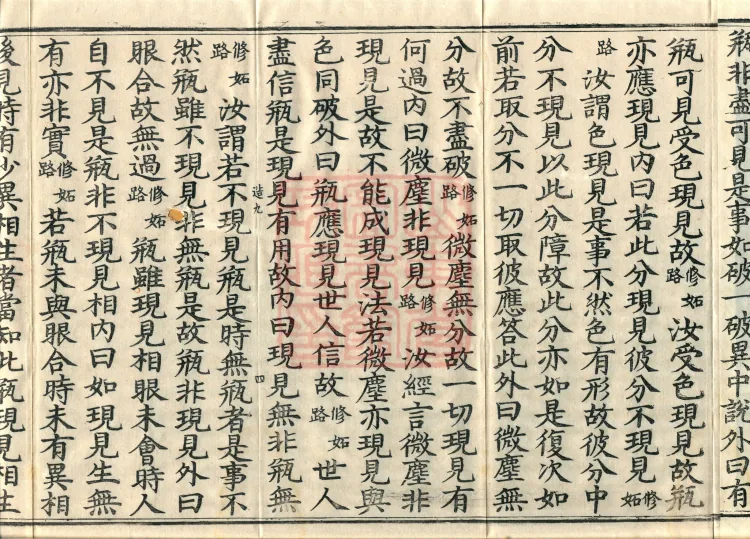 瓶非盡可見是事如破一破異中說外曰有
瓶可見受色現見故修妬路汝受色現見故瓶
亦應現見內曰若此分現見彼分不現見修妬
路汝謂色現見是事不然色有形故彼分中
分不現見以此分障故此分亦如是復次如
前若取分不一切取彼應答此外曰微塵無
分故不盡破修妬路微塵無分故一切現見有
何過內曰微塵非現見修妬路汝經言微塵非
現見是故不能成現見法若微塵亦現見與
色同破外曰瓶應現見世人信故修妬路世人
盡信瓶是現見有用故內曰現見無非瓶無
造九 四
修妬路汝謂若不現見瓶是時無瓶者是事不
然瓶雖不現見非無瓶是故瓶非現見外曰
眼合故無過修妬路瓶雖現見相眼未會時人
自不見是瓶非不現見相內曰如現見生無
有亦非實修妬路若瓶未與眼合時未有異相
後見時有少異相生者當知此瓶現見相生